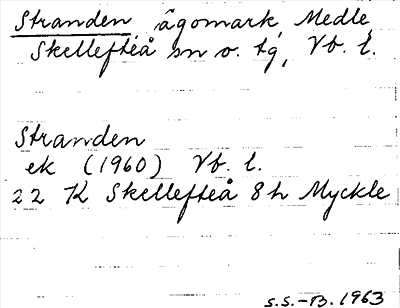 Stranden, ägomark, Medle,
Skellefteå sn o. tg, Vb. l.
Stranden
ek (1960) Vb. l.
22 K Skellefteå 8h Myckle
S.S.-B. 1963